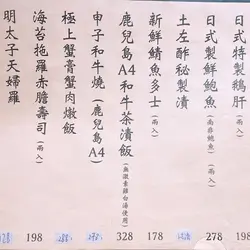 日式特製鵝肝 198
日式製鮮鮑魚(兩入)(南非鮑魚) 278
土左酢秘製漬
新鮮鯖魚多士(兩入) 178
鹿兒島A4和牛茶漬飯(無激素雞白湯使用) 328
申子和牛燒(鹿兒島A4)
極上蟹膏蟹肉燉飯
海苔拖羅赤膽壽司(兩入) 198
明太子天婦羅